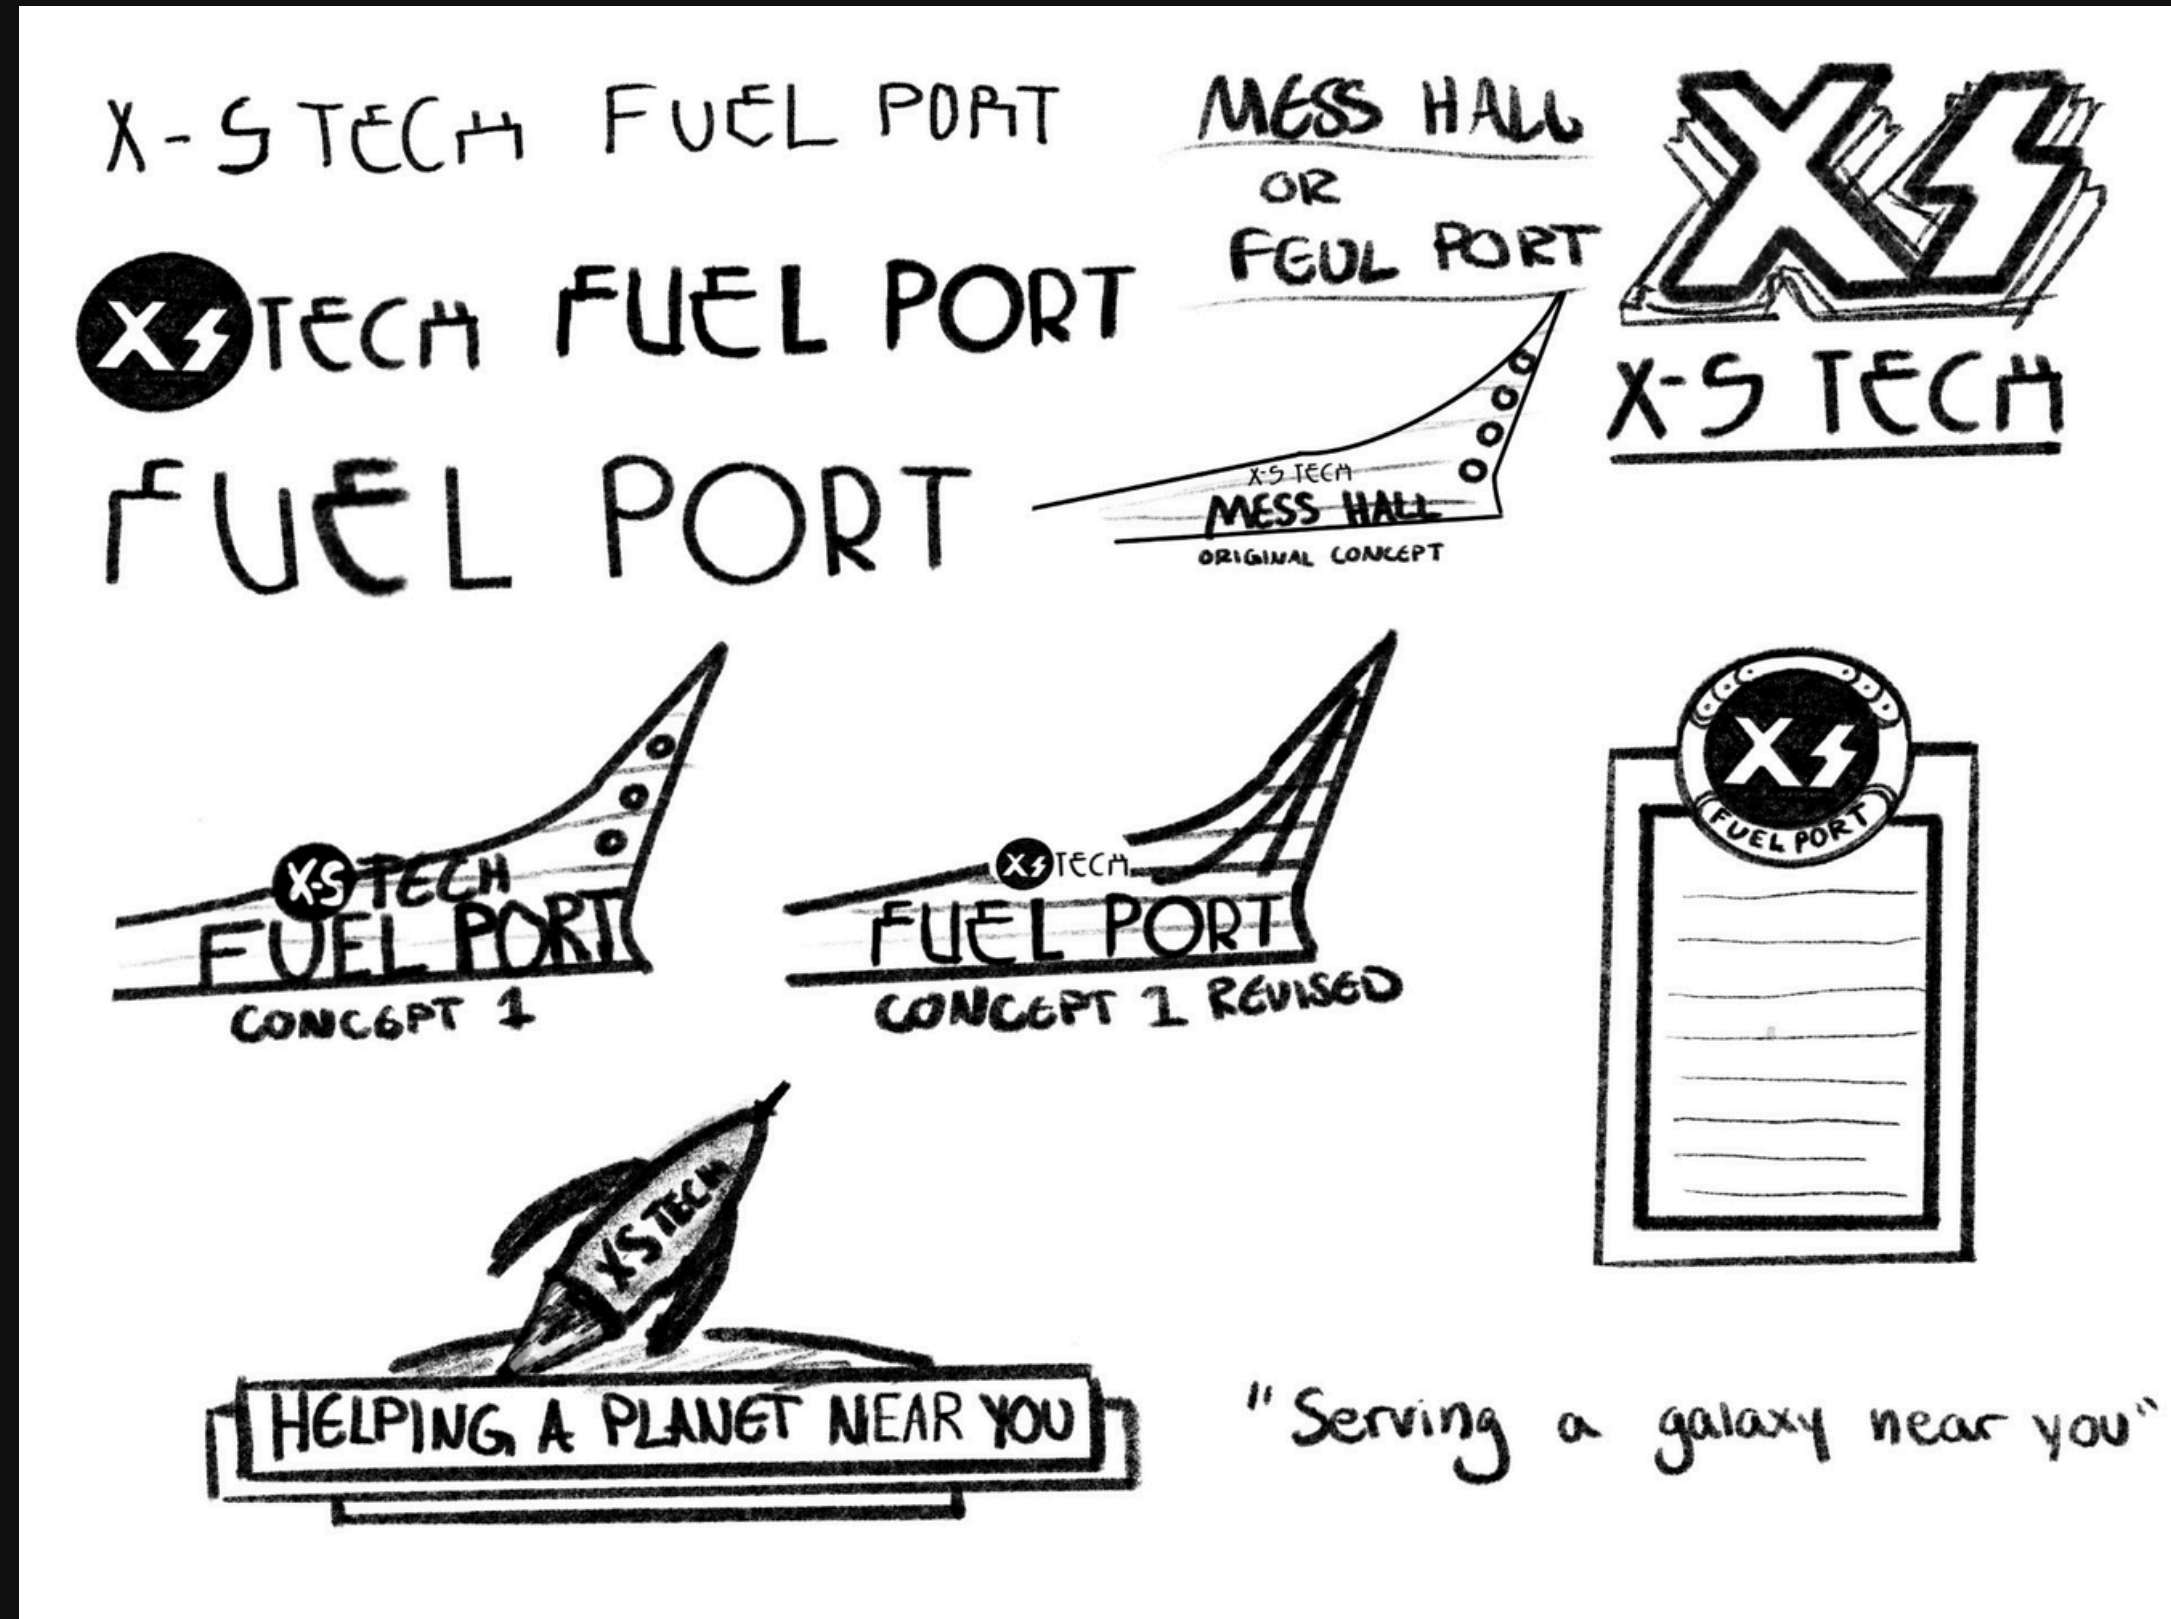 X-S TECH FUEL PORT
MESS HALL
OR
FEUL PORT
XS
X-S TECH
XS TECH FUEL PORT
FUEL PORT
X-S TECH
MESS HALL
ORIGINAL CONCEPT
X-S TECH
FUEL PORT
CONCEPT 1
XS TECH
FUEL PORT
CONCEPT 1 REVISED
XS
FUEL PORT
X-S TECH
HELPING A PLANET NEAR YOU
"Serving a galaxy near you"